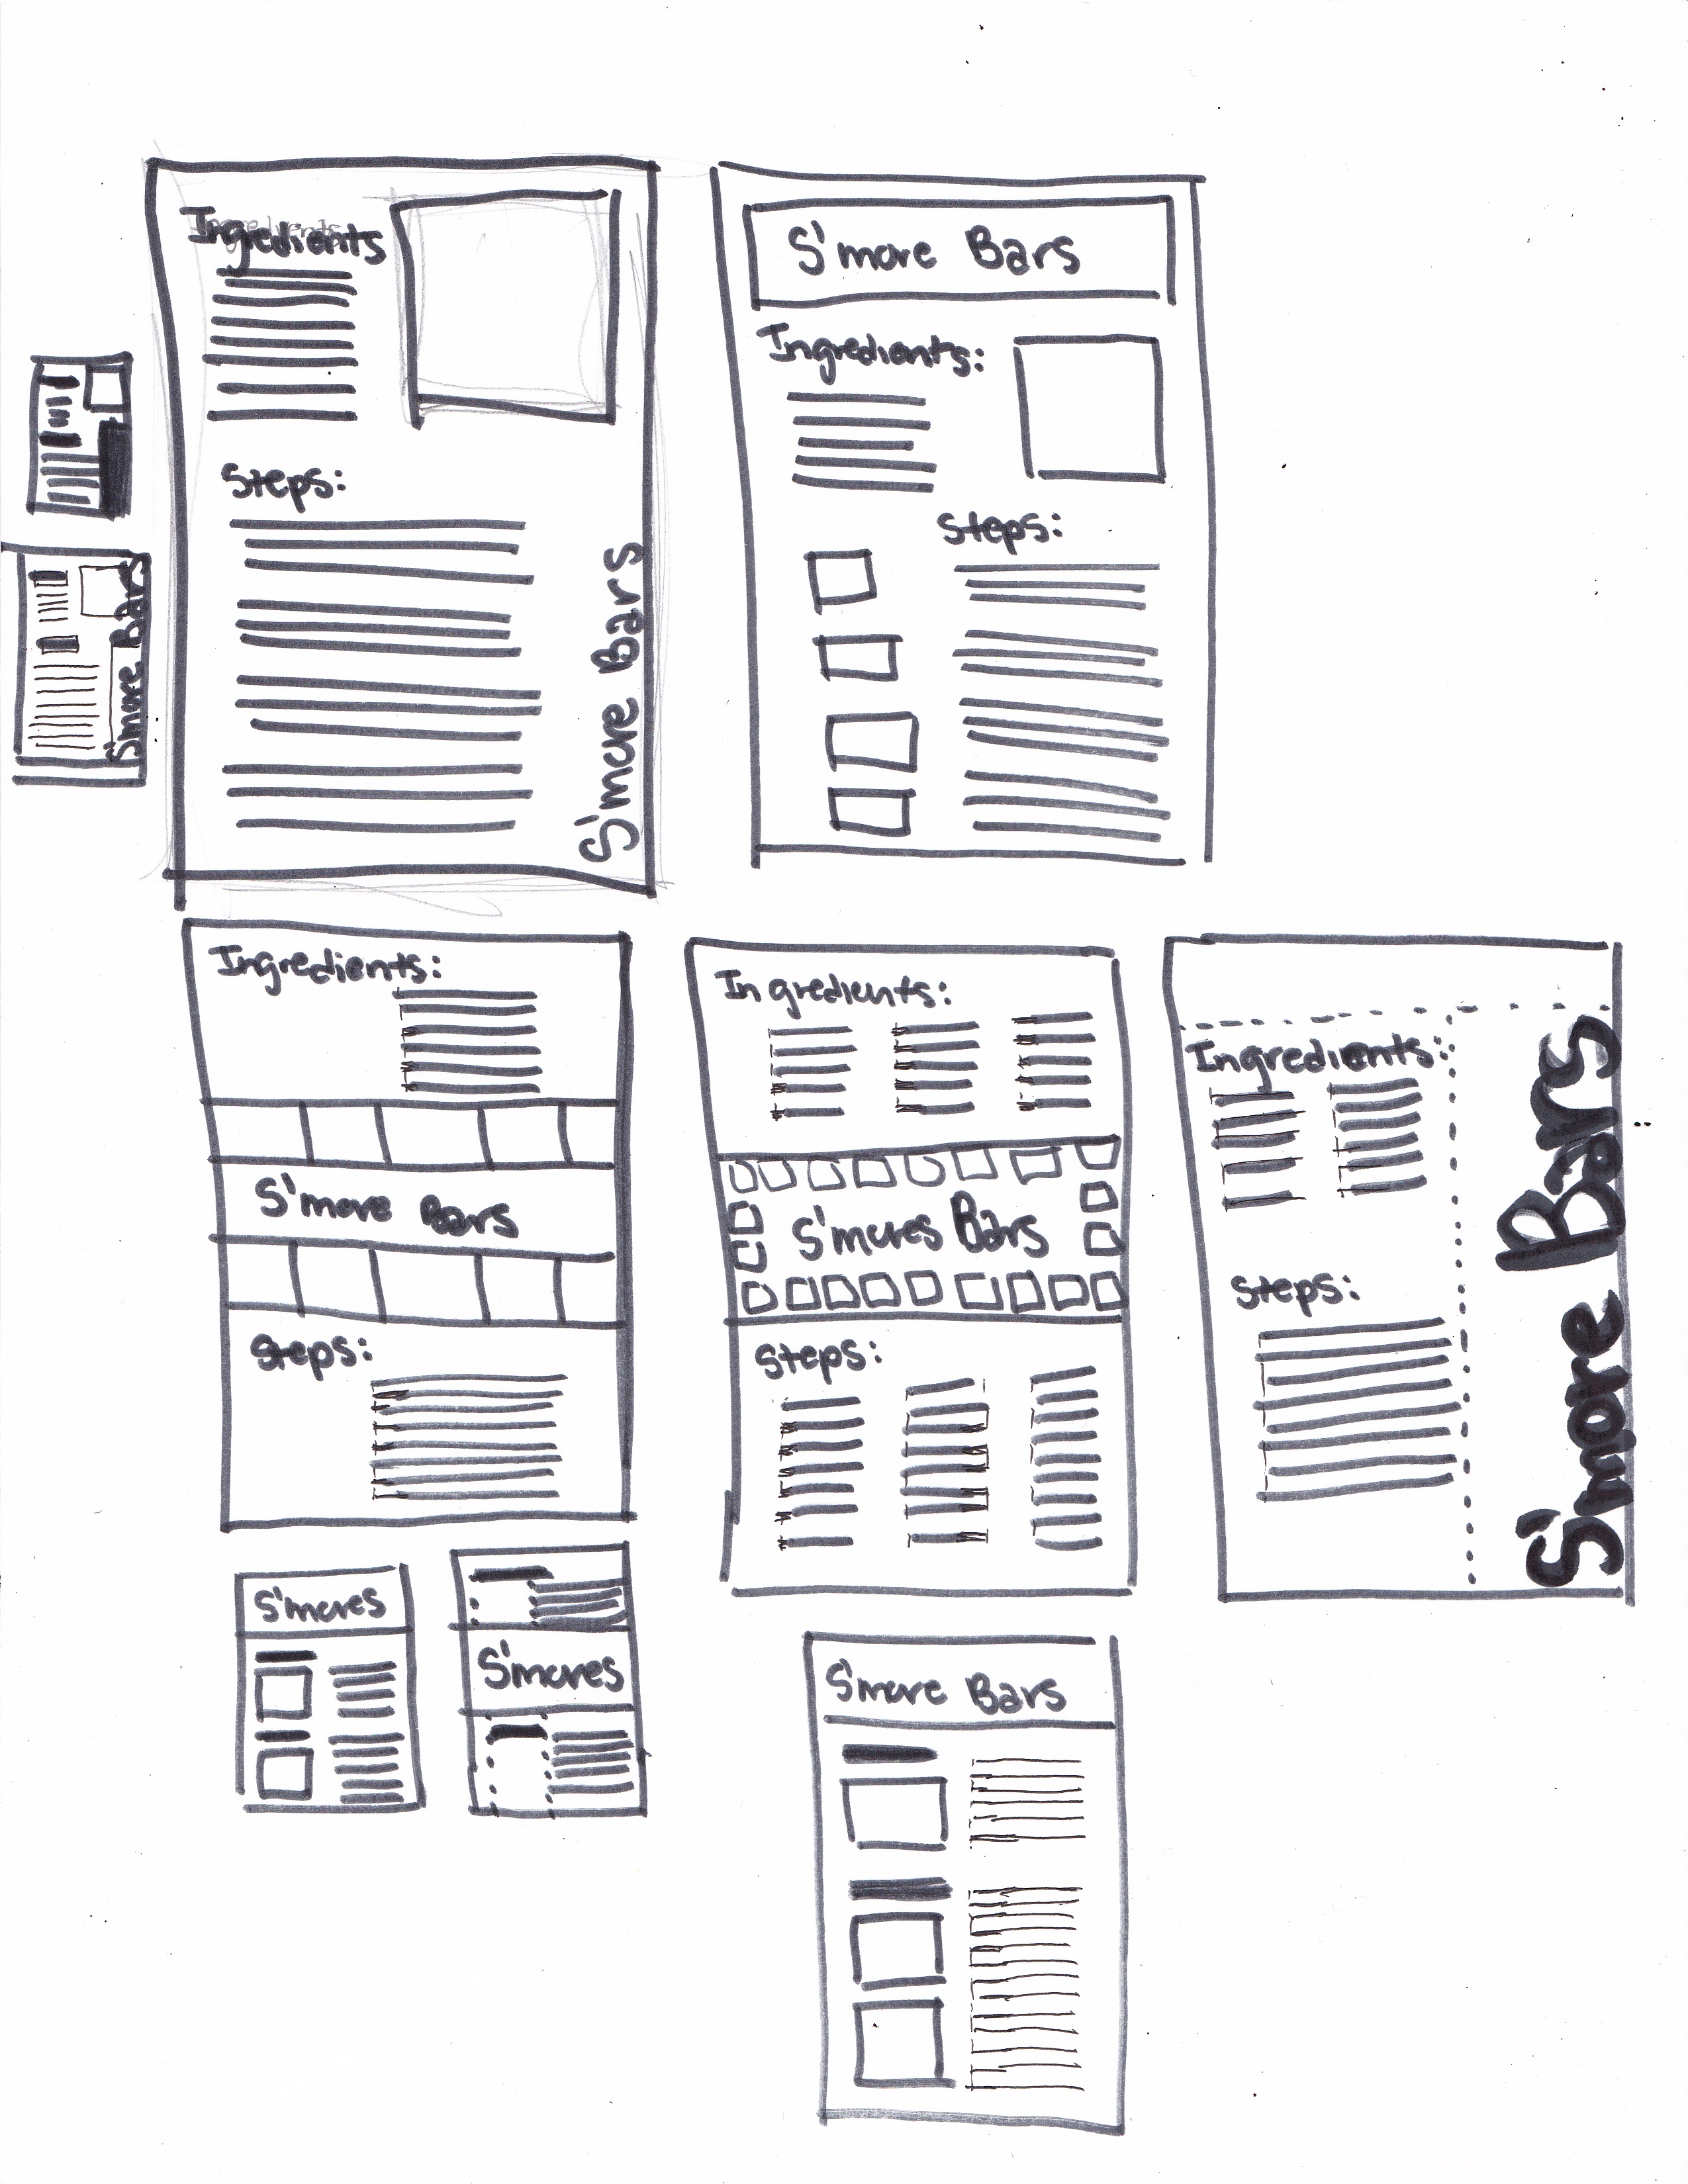 Ingredients
Ingredients
Steps:
S'more Bars
S'more Bars
S'more Bars
Ingredients:
Steps:
Ingredients:
S'more Bars
Steps:
Ingredients:
S'mores Bars
Steps:
Ingredients:
Steps:
S'more Bars
S'mores
S'mores
S'more Bars